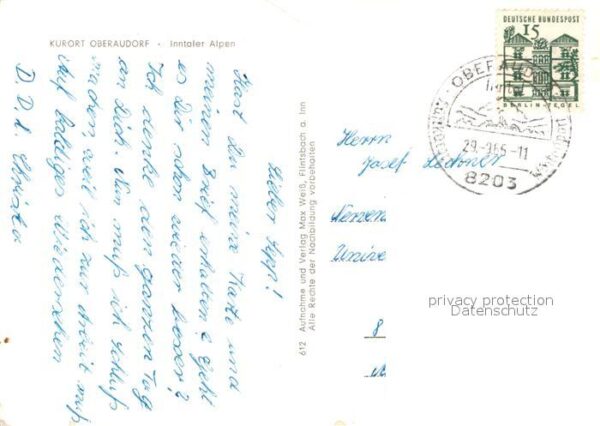 KURORT OBERAUDORF · Inntaler Alpen
Lieber Sepp!
Hast Du meine Karte und
meinen Brief erhalten? Geht
es Dir schon wieder besser?
Ich denke den ganzen Tag
an Dich. Nun muß ich Schluß
machen weil ich zur Arbeit muß
Auf baldiges Wiedersehen
D. D. l. Christa
612 Aufnahme und Verlag Max Weiß, Flintsbach a. Inn
Alle Rechte der Nachbildung vorbehalten
DEUTSCHE BUNDESPOST
15
BERLIN-TEGEL
OBERAUD
29.-9.65-11
8203
Herrn
Josef Lechner
Nerven
Unive
8
privacy protection
Datenschutz